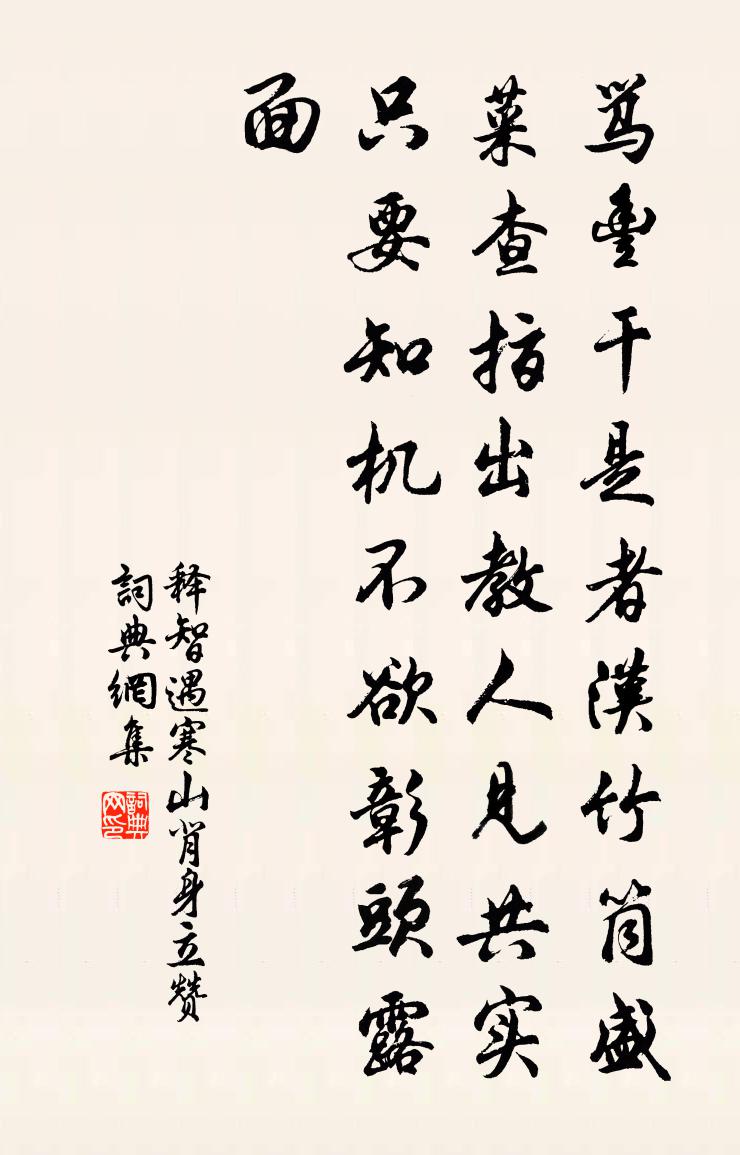 骂豐干是者漢竹筒盛
菜查指出教人見共实
只要知机不欲彰頭露
面
释智遇寒山肖身立赞
詞典網集
詞典网印